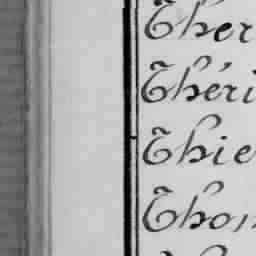 Ther
Théri
Thie
Thom